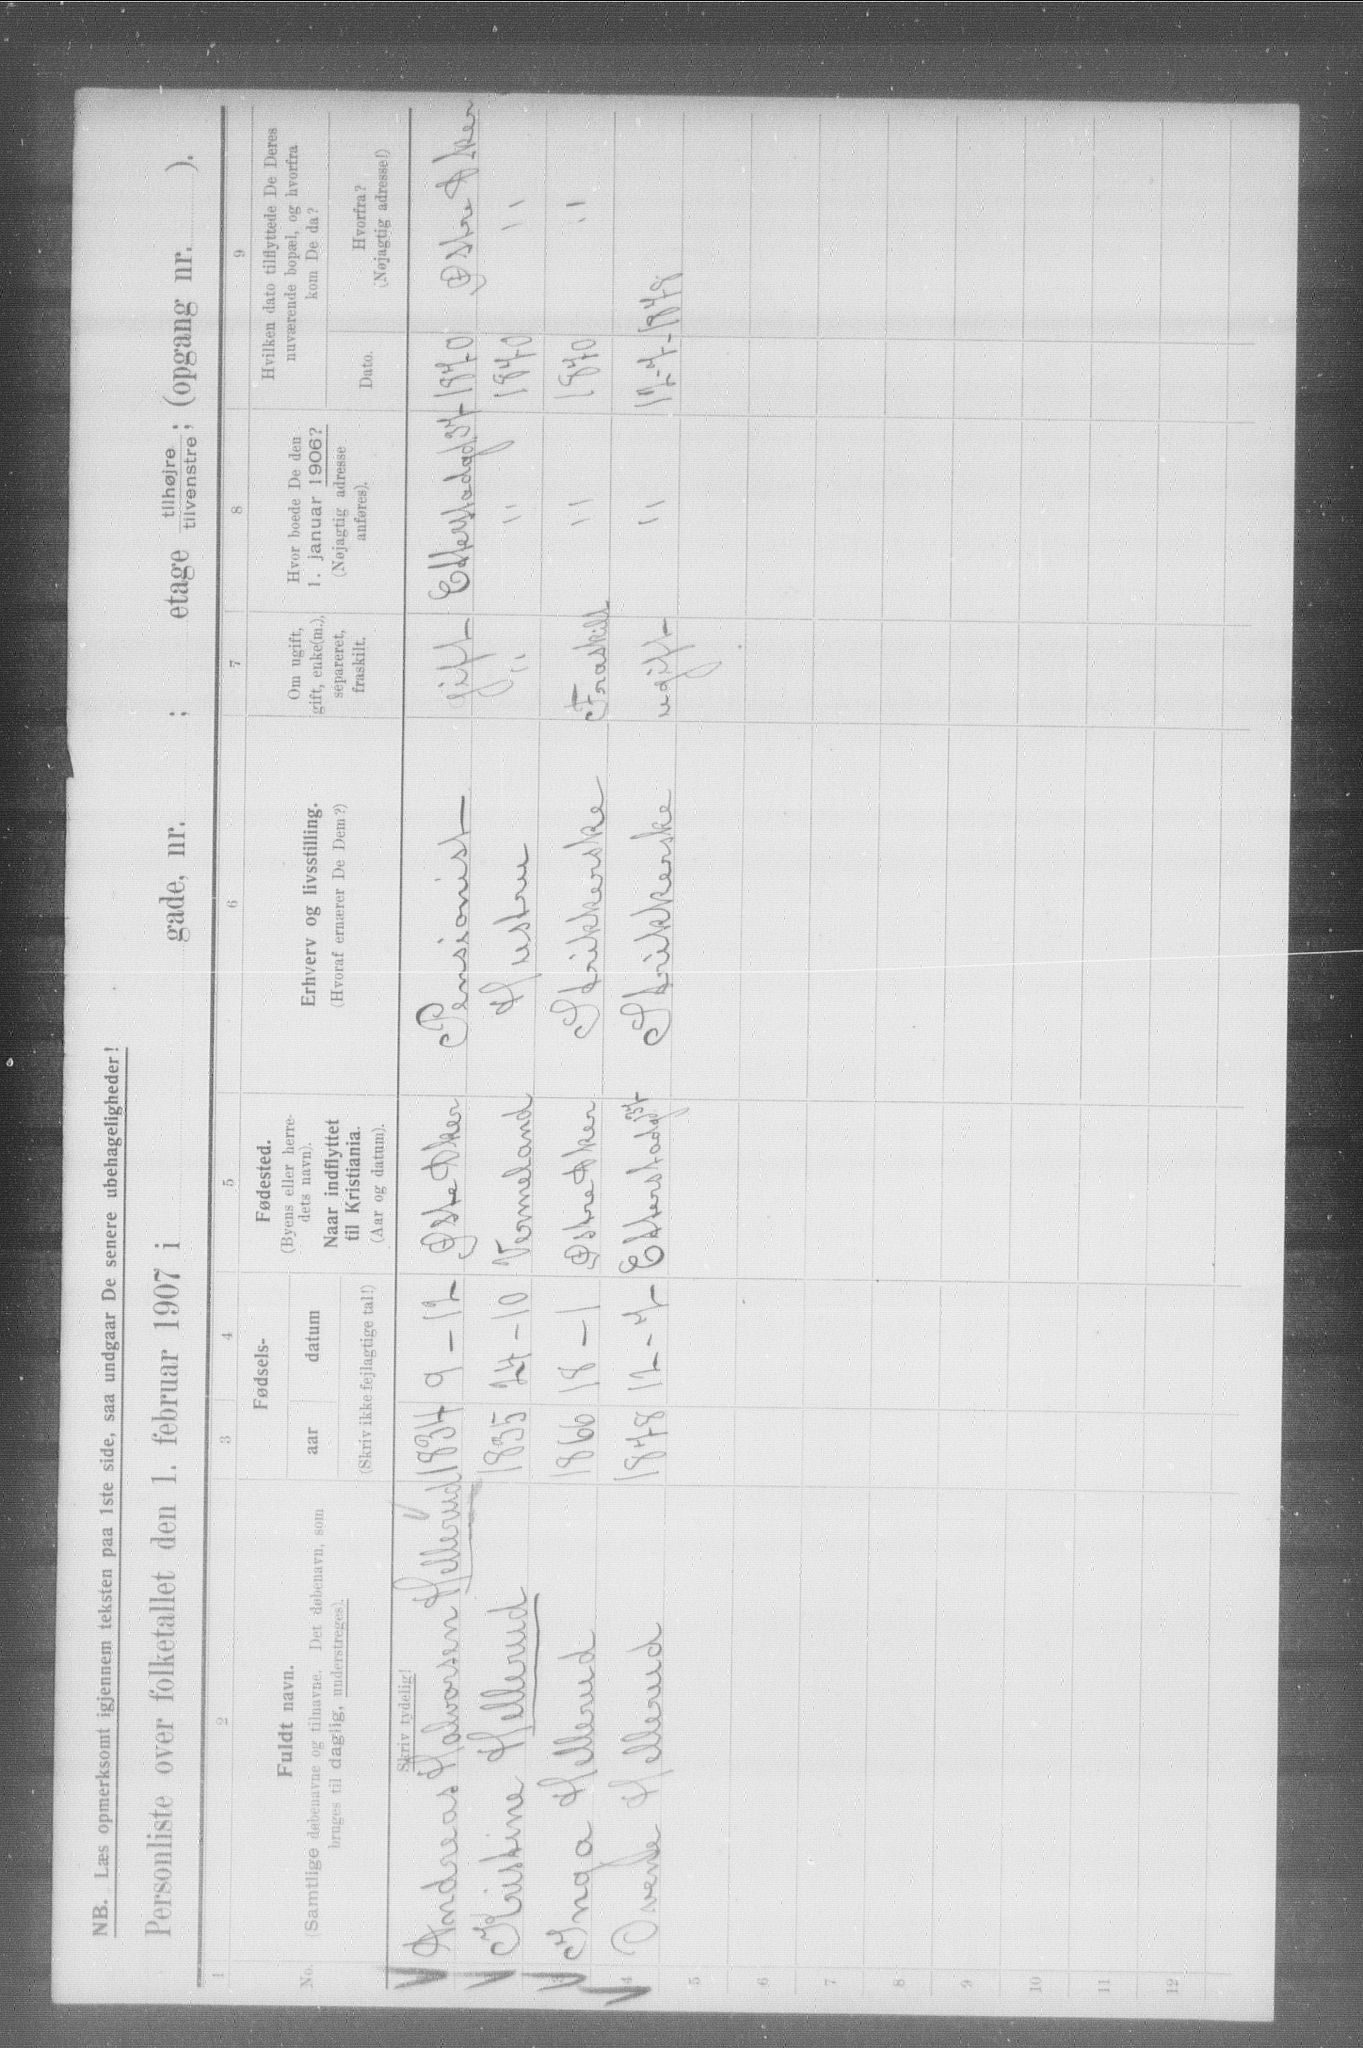 NB. Læs opmerksomt igjennem teksten paa 1ste side, saa undgaar De senere ubehageligheder!
Personliste over folketallet den 1. februar 1907 i gade, nr. ; etage tilhøjre tilvenstre; (opgang nr. ).
1 2 3 4 5 6 7 8 9
No.
Fuldt navn.
(Samtlige døbenavne og tilnavne. Det døbenavn, som
bruges til daglig, understreges).
Fødsels-
aar
datum
(Skriv ikke fejlagtige tal!)
Fødested.
(Byens eller herre-
dets navn).
Naar indflyttet
til Kristiania.
(Aar og datum).
Erhverv og livsstilling.
(Hvoraf ernærer De Dem?)
Om ugift,
gift, enke(m.),
separeret,
fraskilt.
Hvor boede De den
1. januar 1906?
(Nøjagtig adresse
anføres).
Hvilken dato tilflyttede De Deres
nuværende bopæl, og hvorfra
kom De da?
Dato.
Hvorfra?
(Nøjagtig adresse!)
Skriv tydelig!
Andreas Halvorsen Hellerud 1834 9-12 Østre Aker Pensionist gift Etterstadgd 37 1870 Østre Aker
Kristine Hellerud 1835 24-10 Vermeland Hustru " " 1870 "
Inga Hellerud 1866 18-1 Østre Aker Strikkerske Fraskilt " 1870 "
4 Hellerud 1878 12-7 Etterstadgt 37 Strikkerske ugift " 12-7-1878
5
6
7
8
9
10
11
12